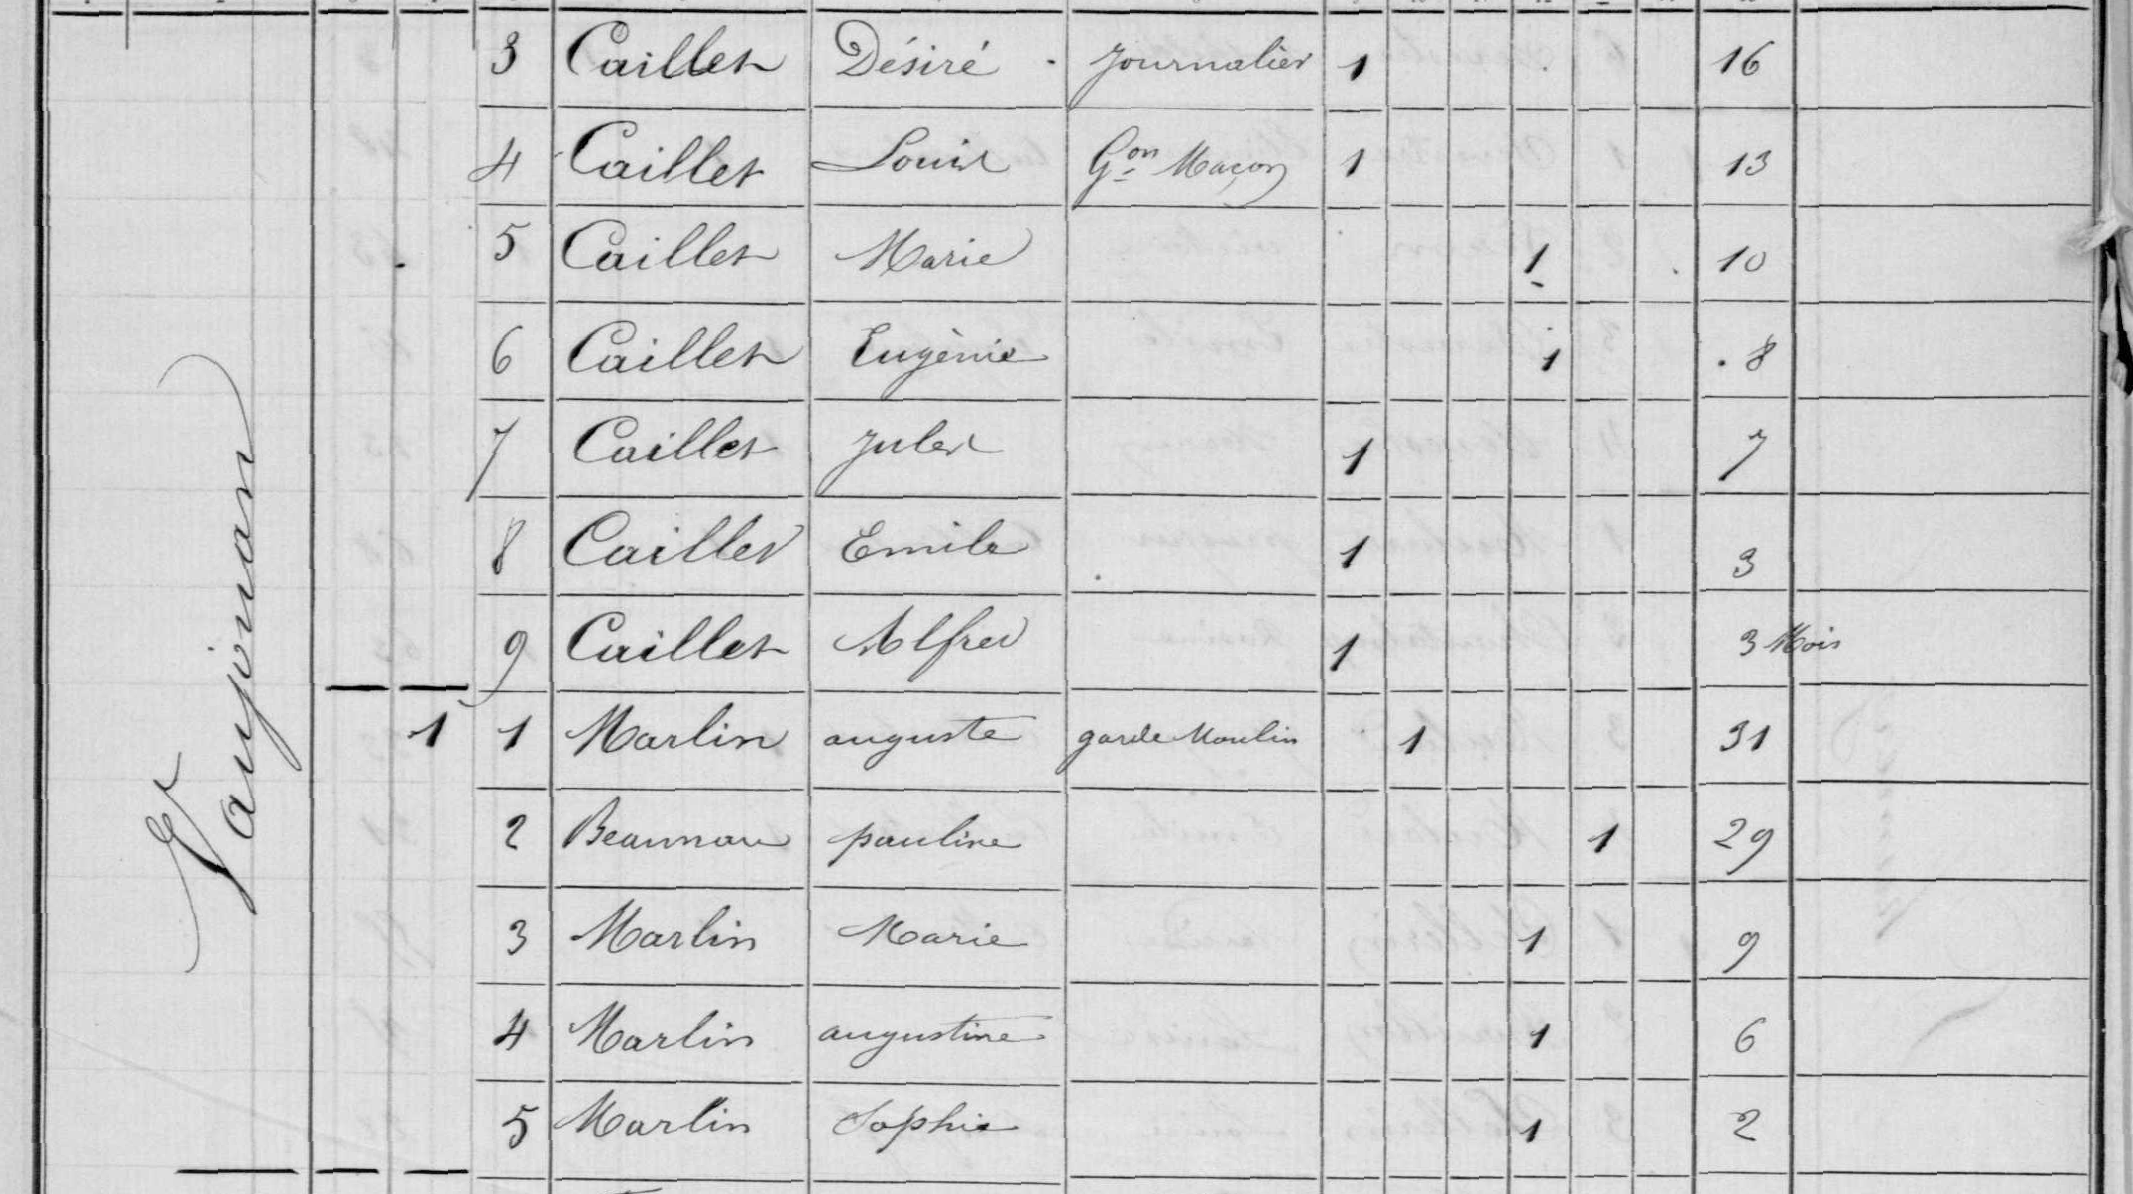 3 Caillet Désiré journalier 1 16
4 Caillet Louis Gon Maçon 1 13
5 Caillet Marie 1 10
6 Caillet Eugènie 1 8
7 Caillet Jules 1 7
8 Caillet Emile 1 3
9 Caillet Alfred 1 3 Mois
Vaujouan
1 1 Marlin auguste garde Moulin 1 31
2 pauline 1 29
3 Marlin Marie 1 9
4 Marlin augustine 1 6
5 Marlin Sophie 1 2